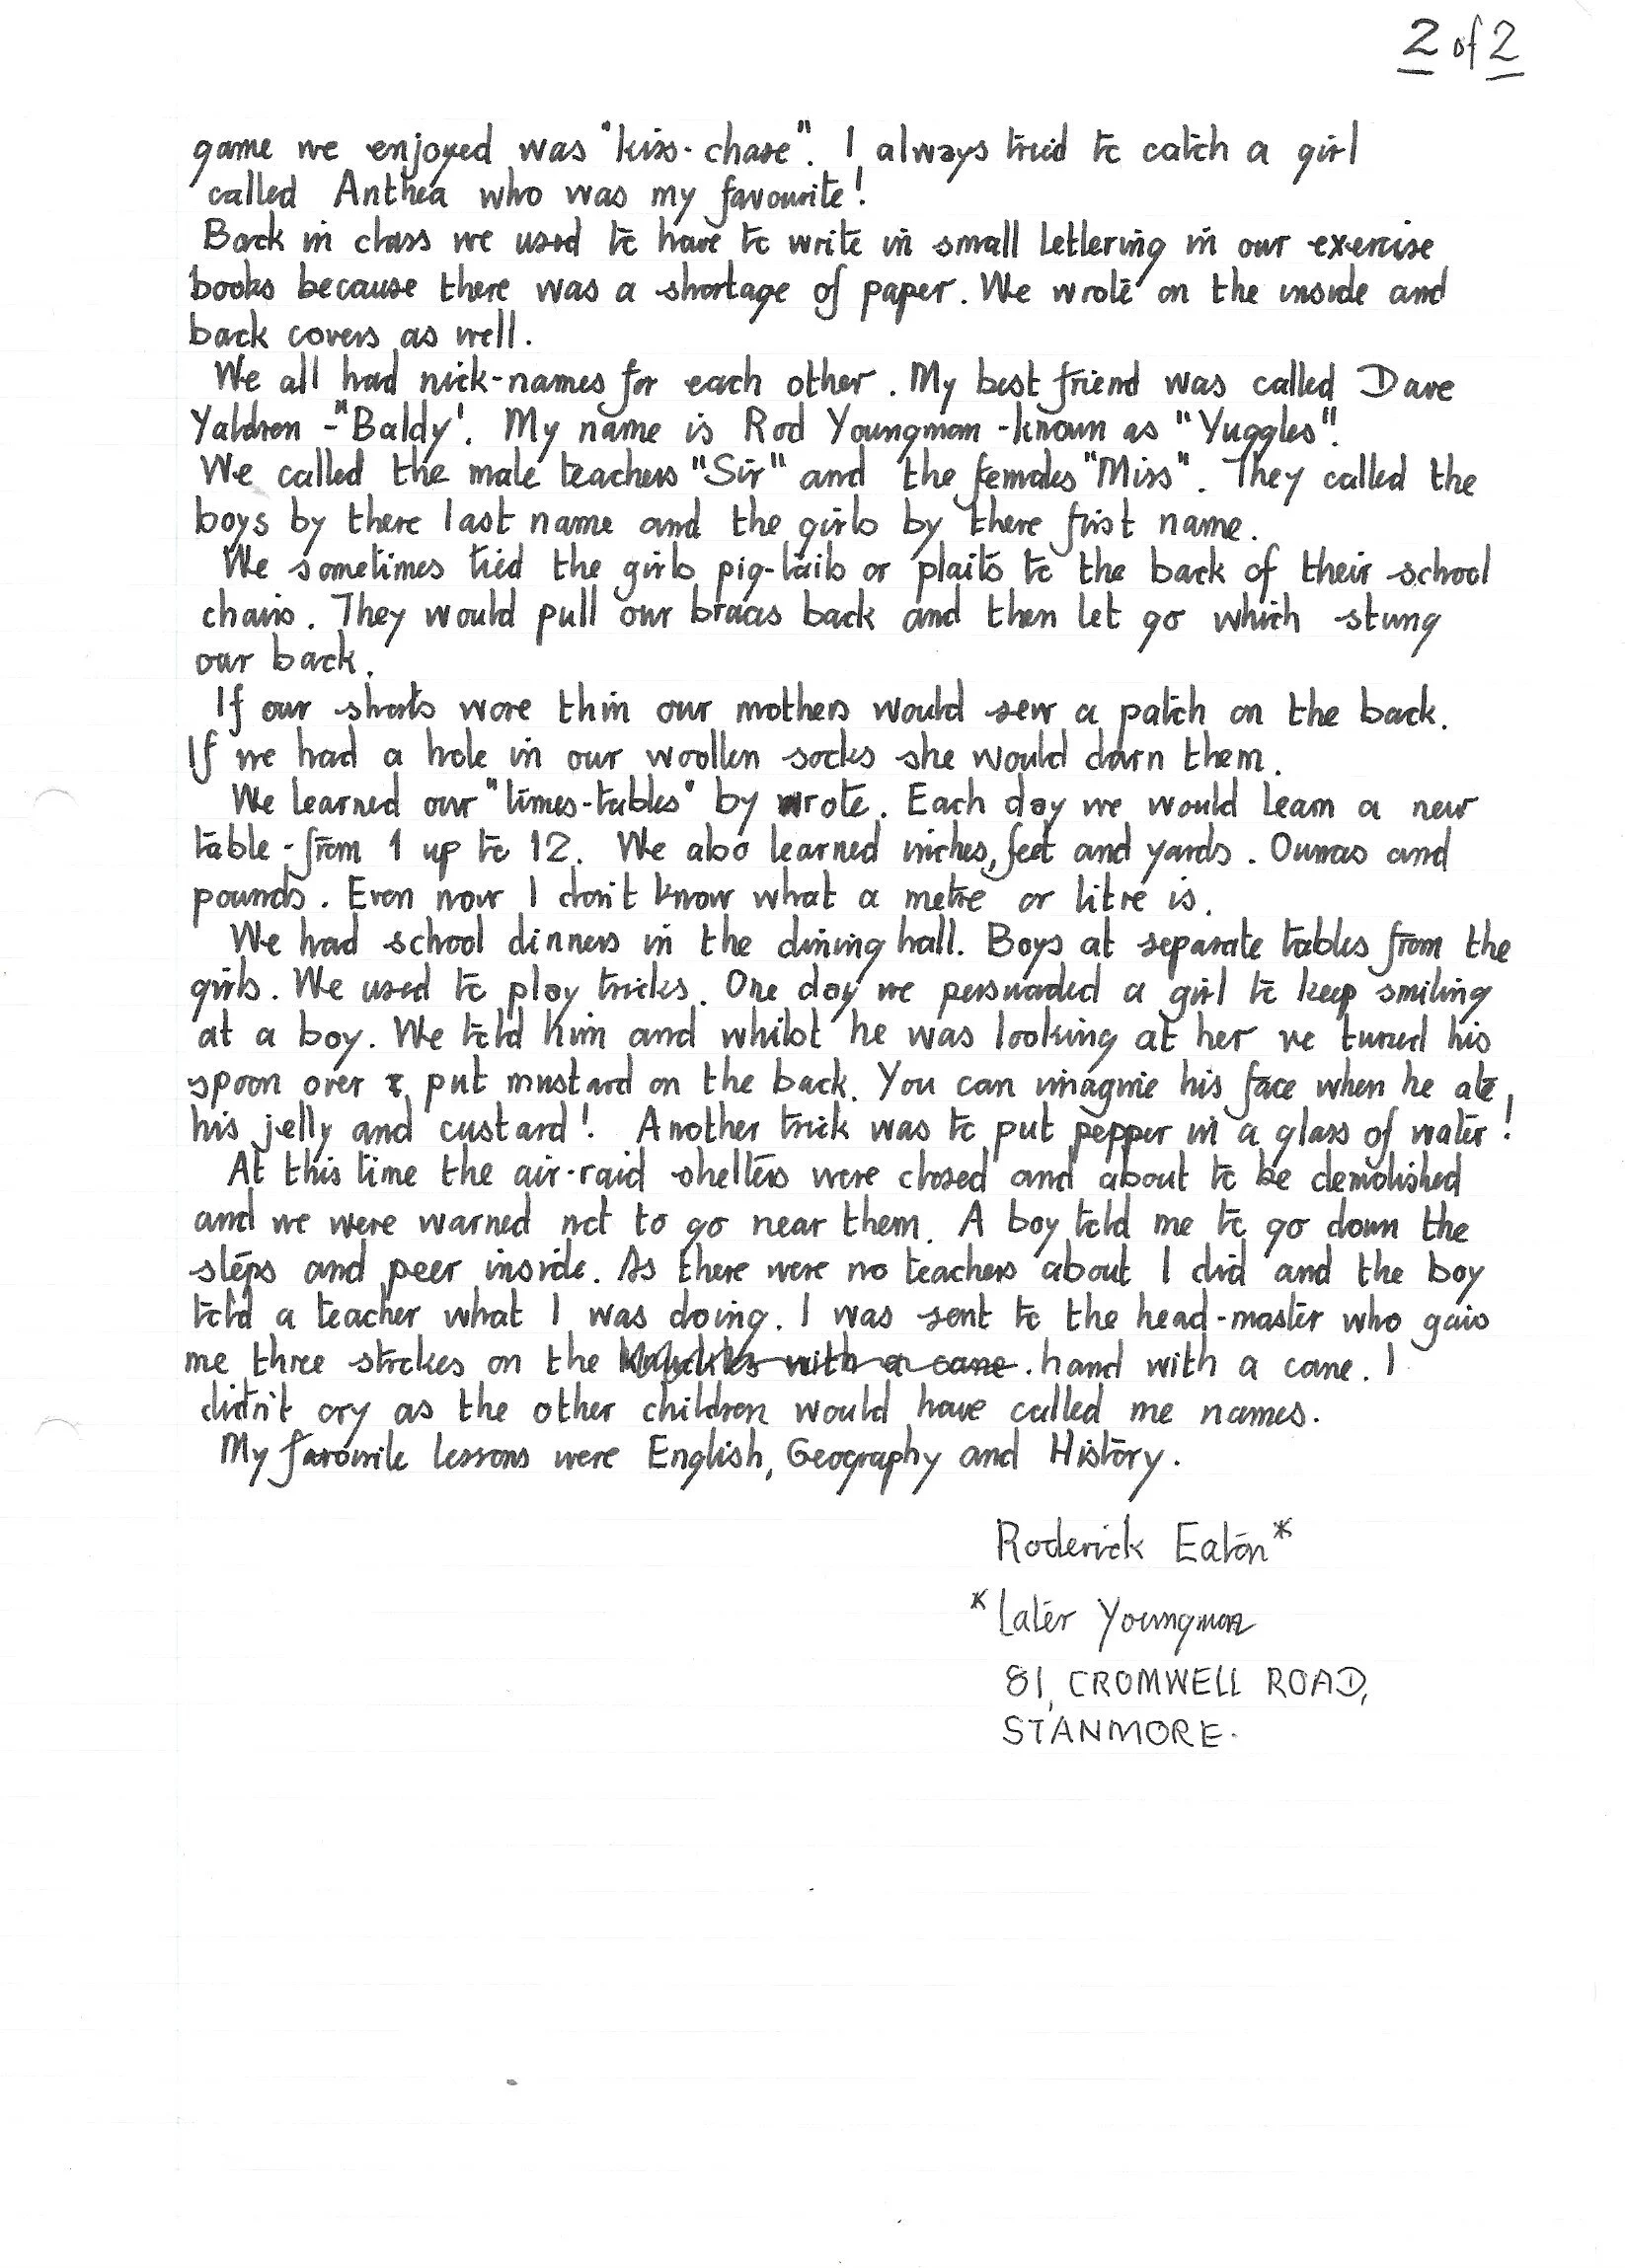 2 of 2
game we enjoyed was "kiss-chase". I always tried to catch a girl
called Anthea who was my favourite!
Back in class we used to have to write in small lettering in our exercise
books because there was a shortage of paper. We wrote on the inside and
back covers as well.
We all had nick-names for each other. My best friend was called Dave
Yaldren - "Baldy'. My name is Rod Youngman - known as "Yuggles".
We called the male teachers "Sir" and the females "Miss". They called the
boys by there last name and the girls by there first name.
We sometimes tied the girls pig-tails or plaits to the back of their school
chairs. They would pull our braces back and then let go which stung
our back.
If our shorts wore thin our mothers would sew a patch on the back.
If we had a hole in our woollen socks she would darn them.
We learned our "times-tables" by wrote. Each day we would learn a new
table - from 1 up to 12. We also learned inches, feet and yards. Ounces and
pounds. Even now I don't know what a metre or litre is.
We had school dinners in the dining hall. Boys at separate tables from the
girls. We used to play tricks. One day we persuaded a girl to keep smiling
at a boy. We told him and whilst he was looking at her we turned his
spoon over & put mustard on the back. You can imagine his face when he ate
his jelly and custard! Another trick was to put pepper in a glass of water!
At this time the air-raid shelters were closed and about to be demolished
and we were warned not to go near them. A boy told me to go down the
steps and peer inside. As there were no teachers about I did and the boy
told a teacher what I was doing. I was sent to the head-master who gave
me three strokes on the knuckles with a cane. hand with a cane. I
didn't cry as the other children would have called me names.
My favourite lessons were English, Geography and History.
Roderick Eaton*
*Later Youngman
81, CROMWELL ROAD,
STANMORE.